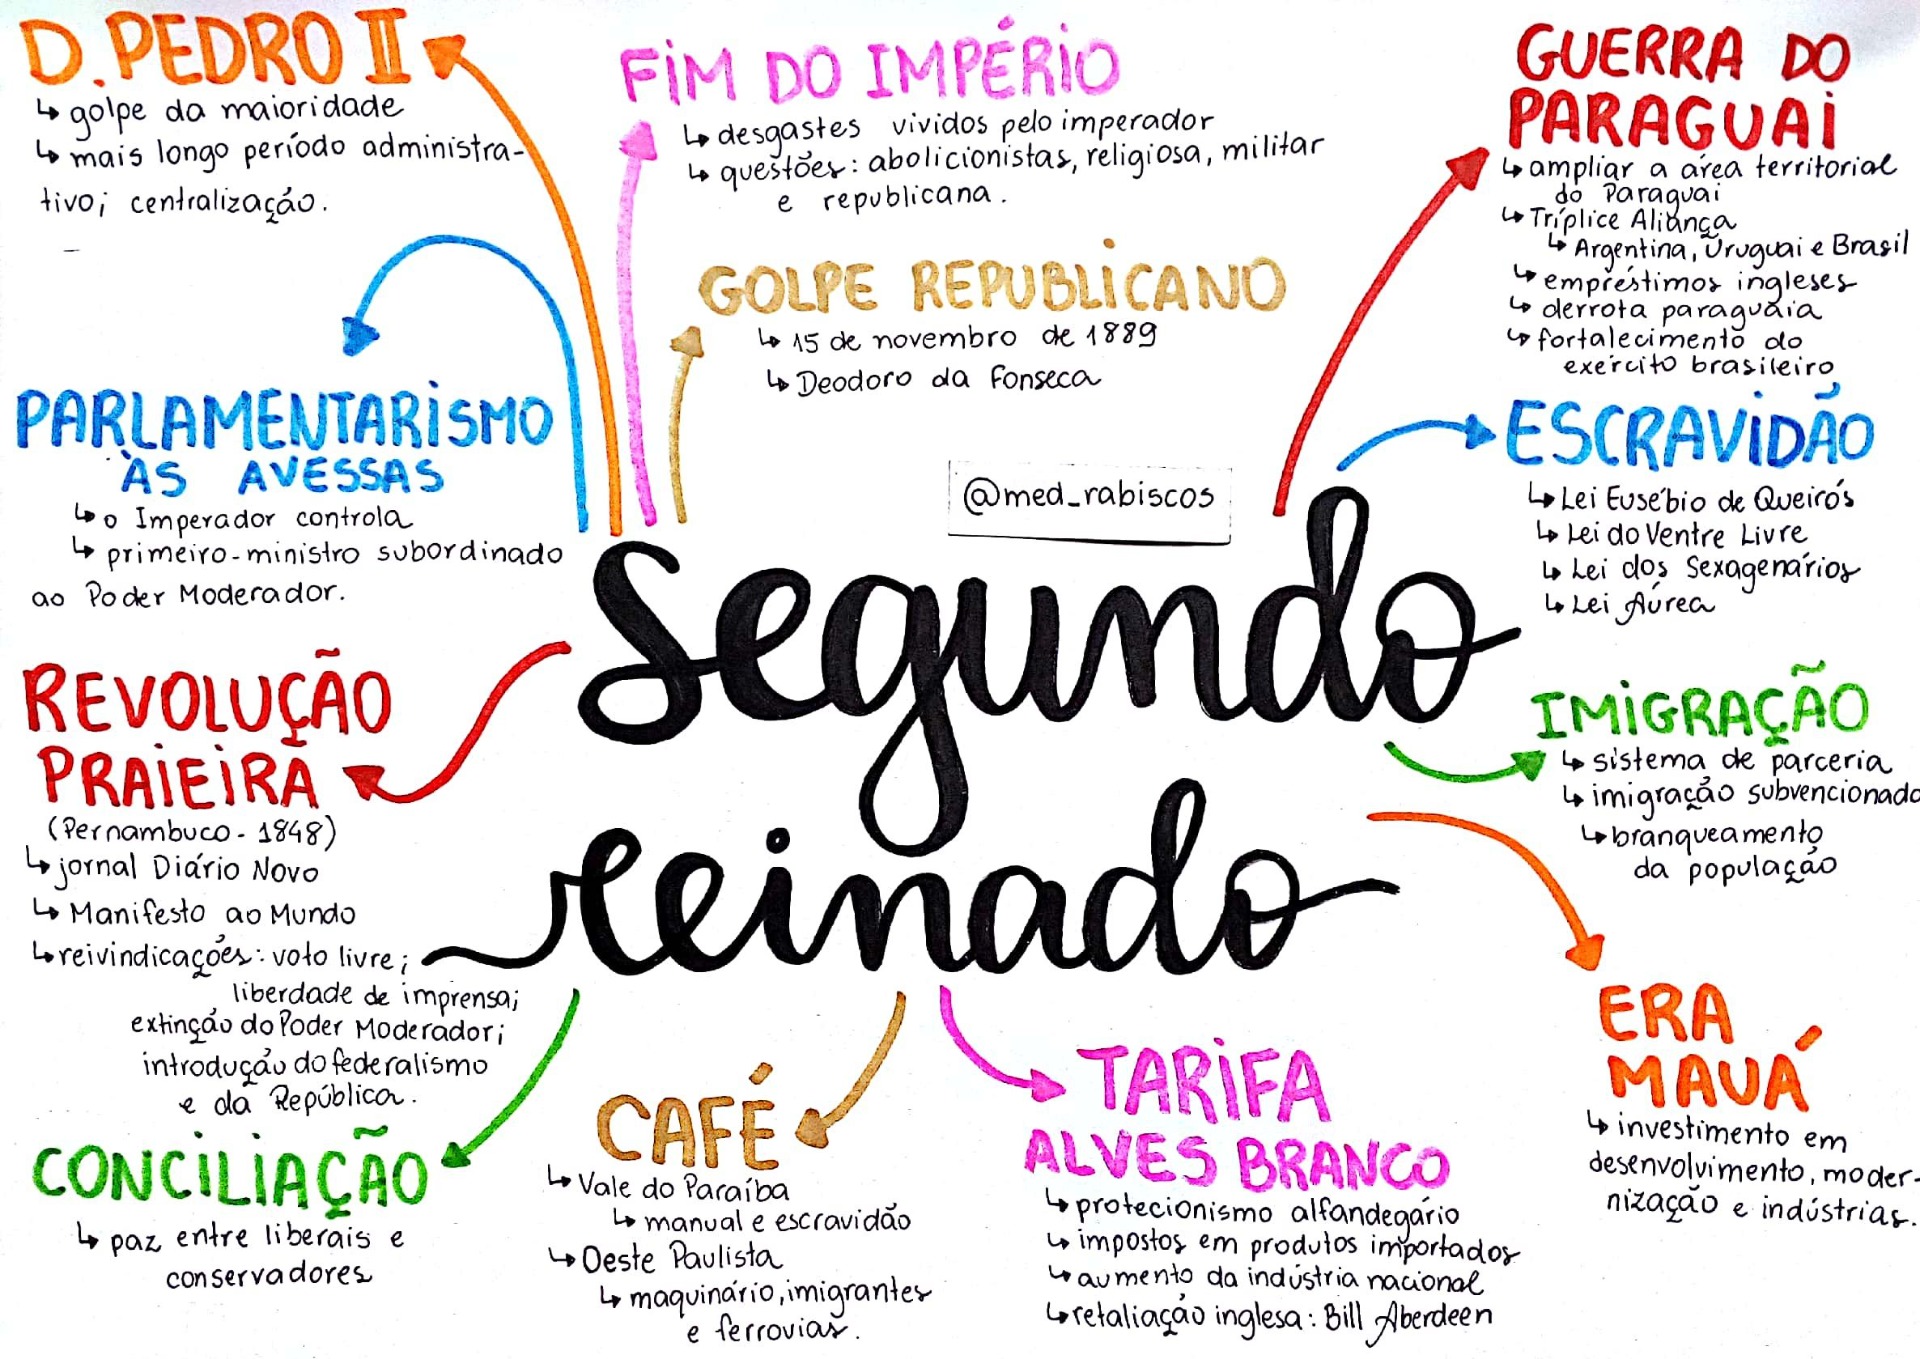 D. PEDRO II
↳ golpe da maioridade
↳ mais longo período administra-
tivo; centralização.
FIM DO IMPÉRIO
↳ desgastes vividos pelo imperador
↳ questões: abolicionistas, religiosa, militar
e republicana.
GOLPE REPUBLICANO
↳ 15 de novembro de 1889
↳ Deodoro da Fonseca
GUERRA DO
PARAGUAI
↳ ampliar a área territorial
do Paraguai
↳ Tríplice Aliança
↳ Argentina, Uruguai e Brasil
↳ empréstimos ingleses
↳ derrota paraguaia
↳ fortalecimento do
exército brasileiro
PARLAMENTARISMO
ÀS AVESSAS
↳ o Imperador controla
↳ primeiro-ministro subordinado
ao Poder Moderador.
@med_rabiscos
ESCRAVIDÃO
↳ Lei Eusébio de Queirós
↳ Lei do Ventre Livre
↳ Lei dos Sexagenários
↳ Lei Áurea
segundo
reinado
REVOLUÇÃO
PRAIEIRA
(Pernambuco - 1848)
↳ jornal Diário Novo
↳ Manifesto ao Mundo
↳ reivindicações: voto livre;
liberdade de imprensa;
extinção do Poder Moderador;
introdução do federalismo
e da República.
IMIGRAÇÃO
↳ sistema de parceria
↳ imigração subvencionada
↳ branqueamento
da população
ERA
MAUÁ
↳ investimento em
desenvolvimento, moder-
nização e indústrias.
CONCILIAÇÃO
↳ paz entre liberais e
conservadores
CAFÉ
↳ Vale do Paraíba
↳ manual e escravidão
↳ Oeste Paulista
↳ maquinário, imigrantes
e ferrovias.
TARIFA
ALVES BRANCO
↳ protecionismo alfandegário
↳ impostos em produtos importados
↳ aumento da indústria nacional
↳ retaliação inglesa: Bill Aberdeen